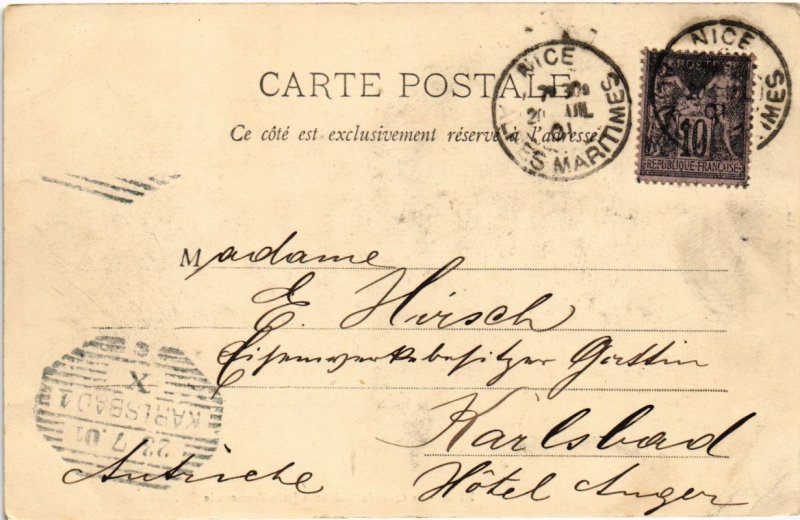 CARTE POSTALE
Ce côté est exclusivement réservé à l'adresse
NICE
20 JUIL 01
ALPES MARITIMES
NICE
MARITIMES
POSTES
10
REPUBLIQUE FRANÇAISE
Madame
E. Hirsch
Eisenwerkebesitzer Gattin
Karlsbad
Hôtel Anger
Autriche
KARLSBAD 1
22.7.01
X